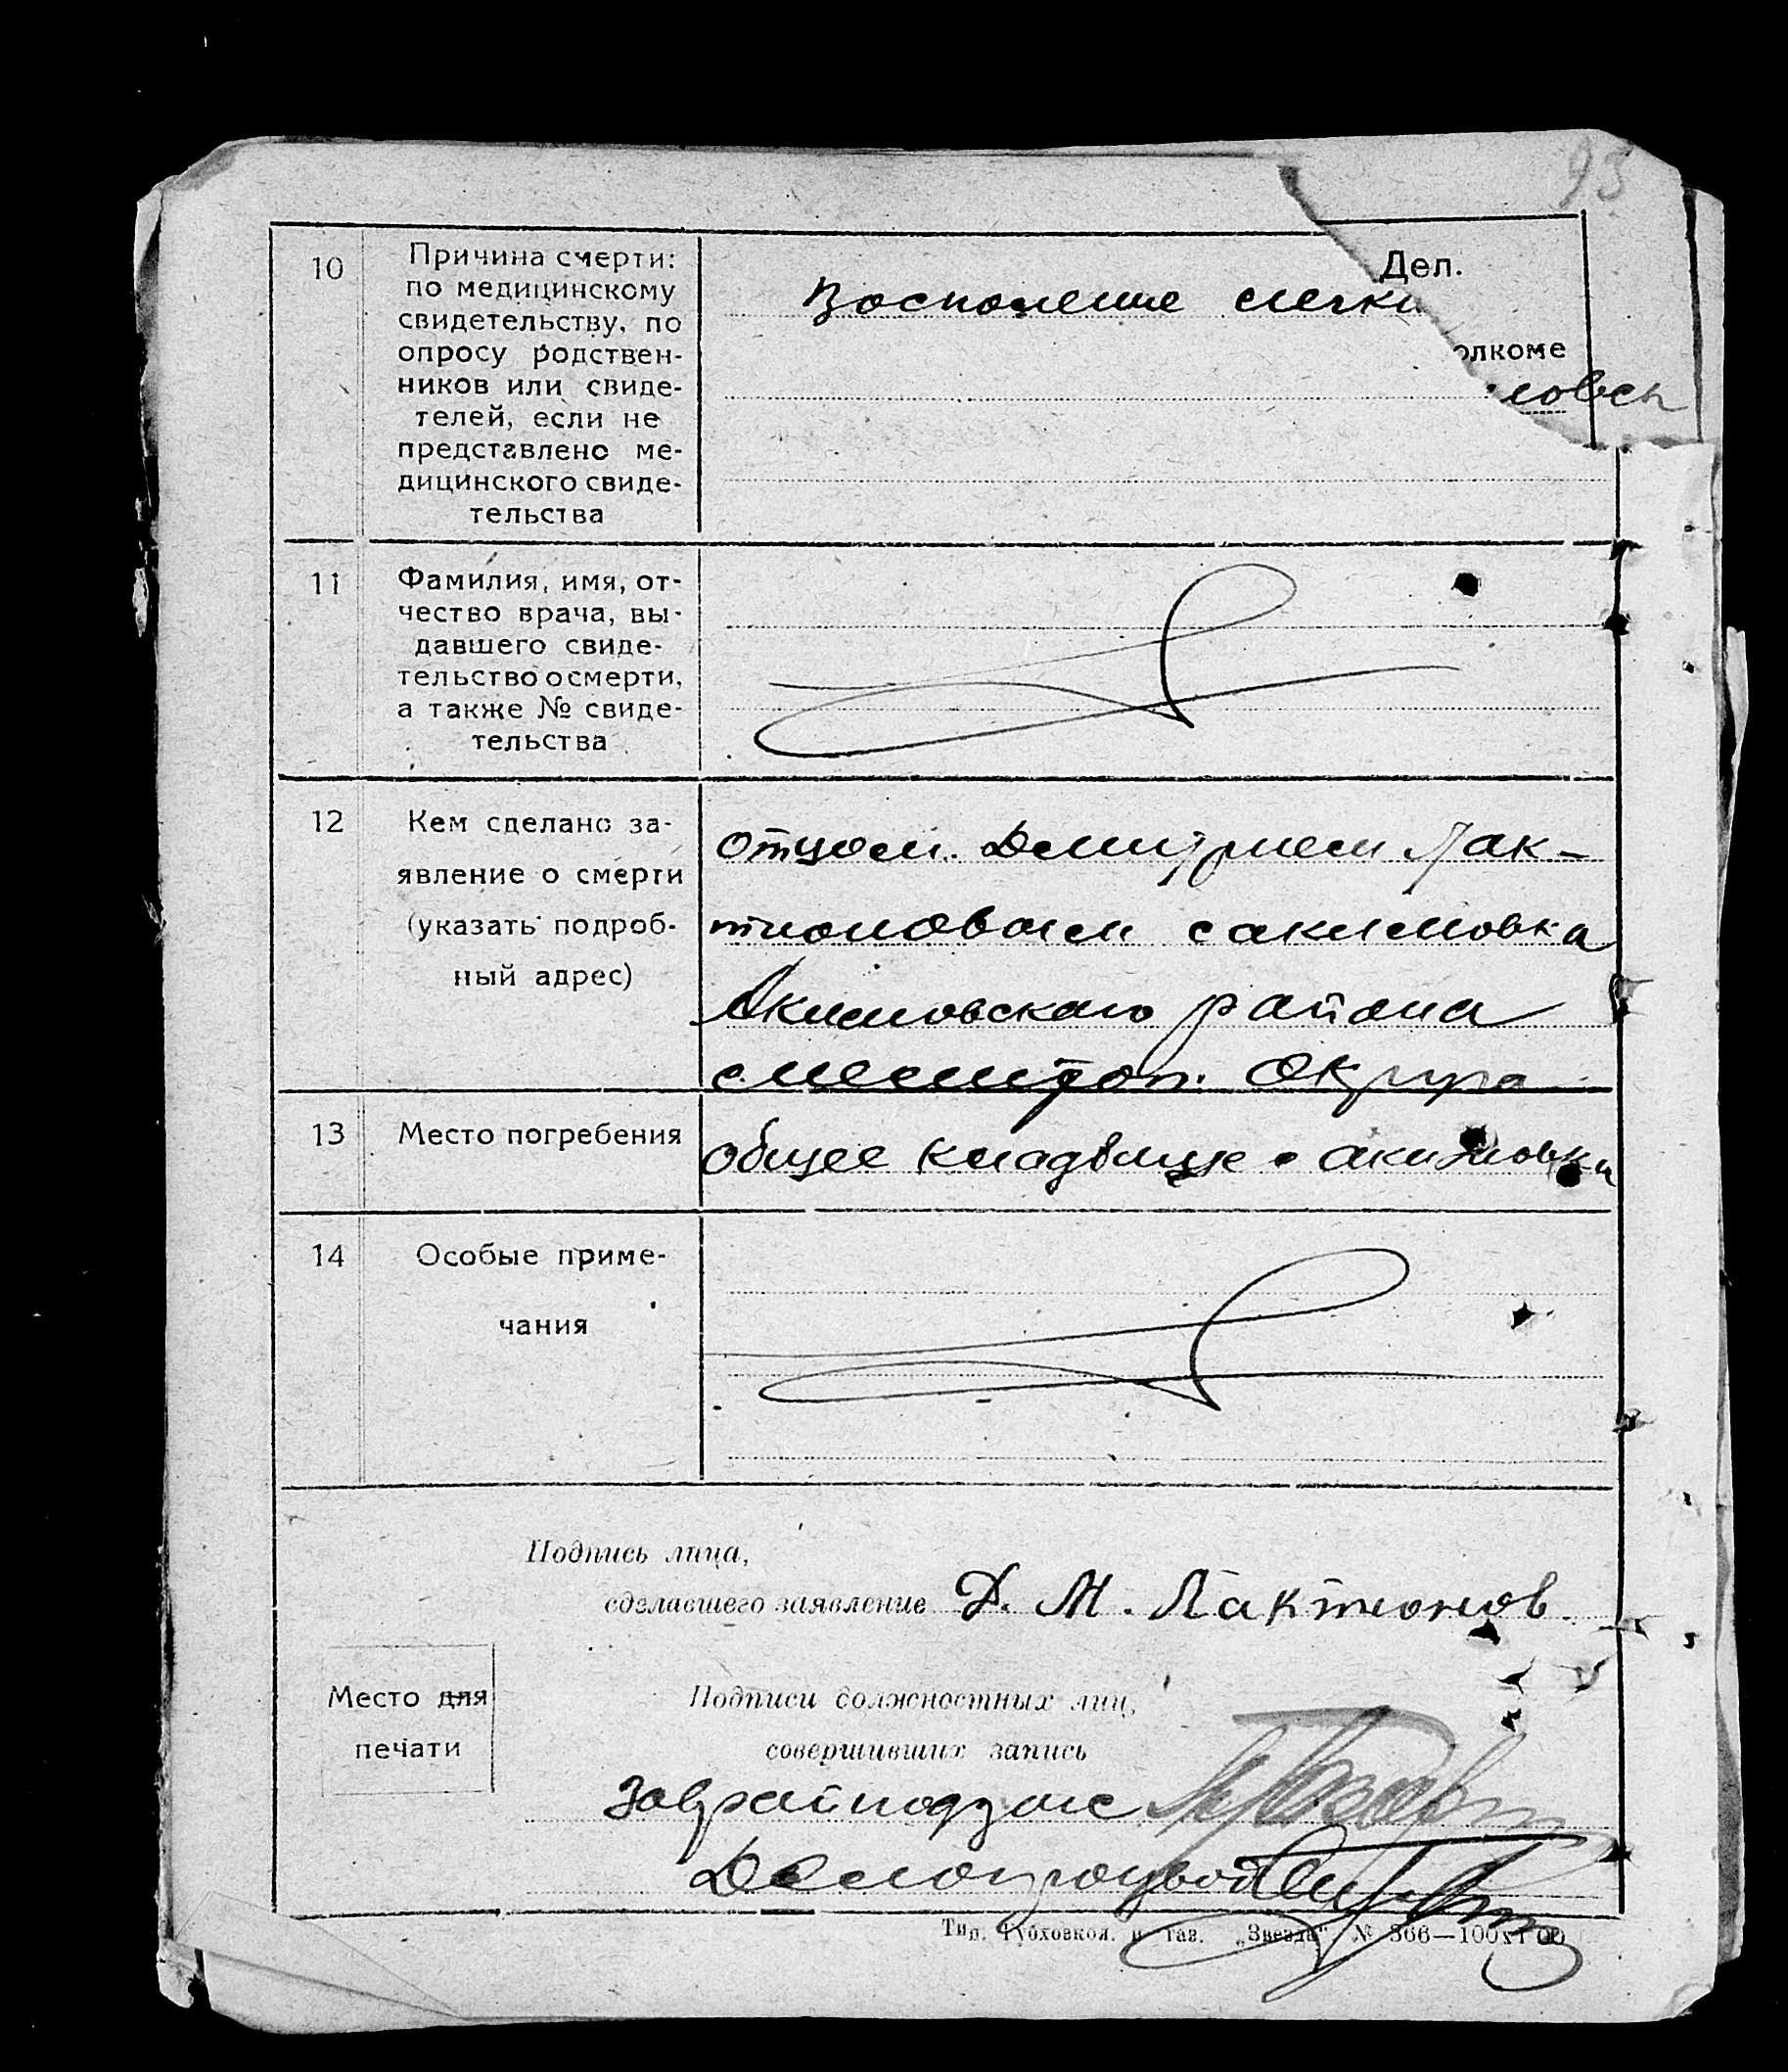 93
10
Причина смерти:
по медицинскому
свидетельству, по
опросу родствен-
ников или свиде-
телей, если не
представлено ме-
дицинского свиде-
тельства
Дел.
Восполение
олкоме
ловск
11
Фамилия, имя, от-
чество врача, вы-
давшего свиде-
тельство о смерти,
а также № свиде-
тельства
12
Кем сделано за-
явление о смерти
(указать подроб-
ный адрес)
отцом. Демитрием Лак-
тионовым с акимовка
Акимовского района
Мелитоп. Округа
13
Место погребения
общее кладвище с акимовка
14
Особые приме-
чания
Подпись лица,
сделавшего заявление Д. М. Лактионов
Место для
печати
Подписи должностных лиц,
совершивших запись
Заврайподзагс
Делопроизвод
Тип. Губховкол. и газ. „Звезда“ № 366—100